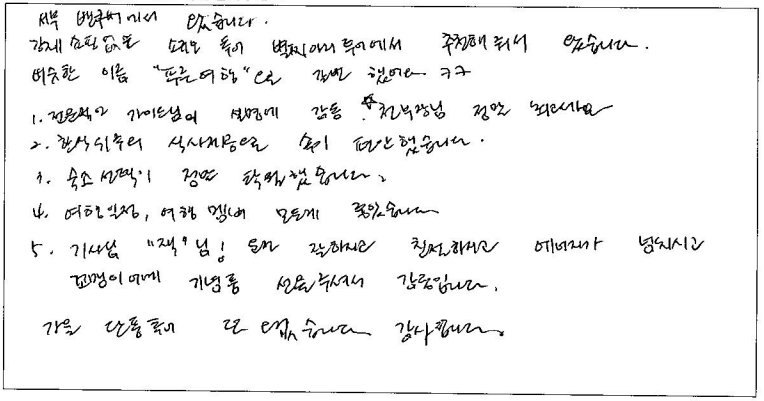 서부 밴쿠버에서 왔습니다.
강제 쇼핑 없는 소규모 투어 벅찌아리 투어에서 추천해 줘서 왔습니다.
비슷한 이름 "푸른여행"으로 갈뻔 했어요 ㅋㅋ
1. 전문적인 가이드님의 설명에 감동. ☆천부장님 정말 최고세요
2. 한식위주의 식사제공으로 속이 편안했습니다.
3. 숙소 선택이 정말 탁월했습니다.
4. 여행일정, 여행 멤버 모든게 좋았습니다
5. 기사님 "잭"님! 운전 잘하시고 친절하시고 에너지가 넘치시고
기념품 선물주셔서 감동입니다.
가을 단풍투어 또 오겠습니다 감사합니다.